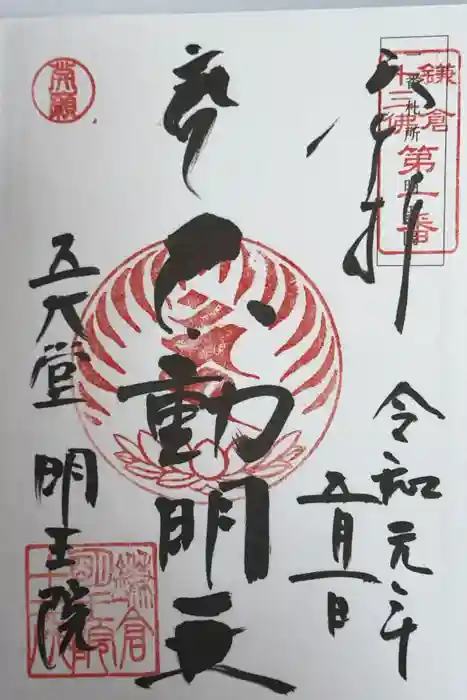 鎌倉
十三佛
第一番
奉拝
令和元年
五月一日
不動明王
五大堂
明王院
鎌倉